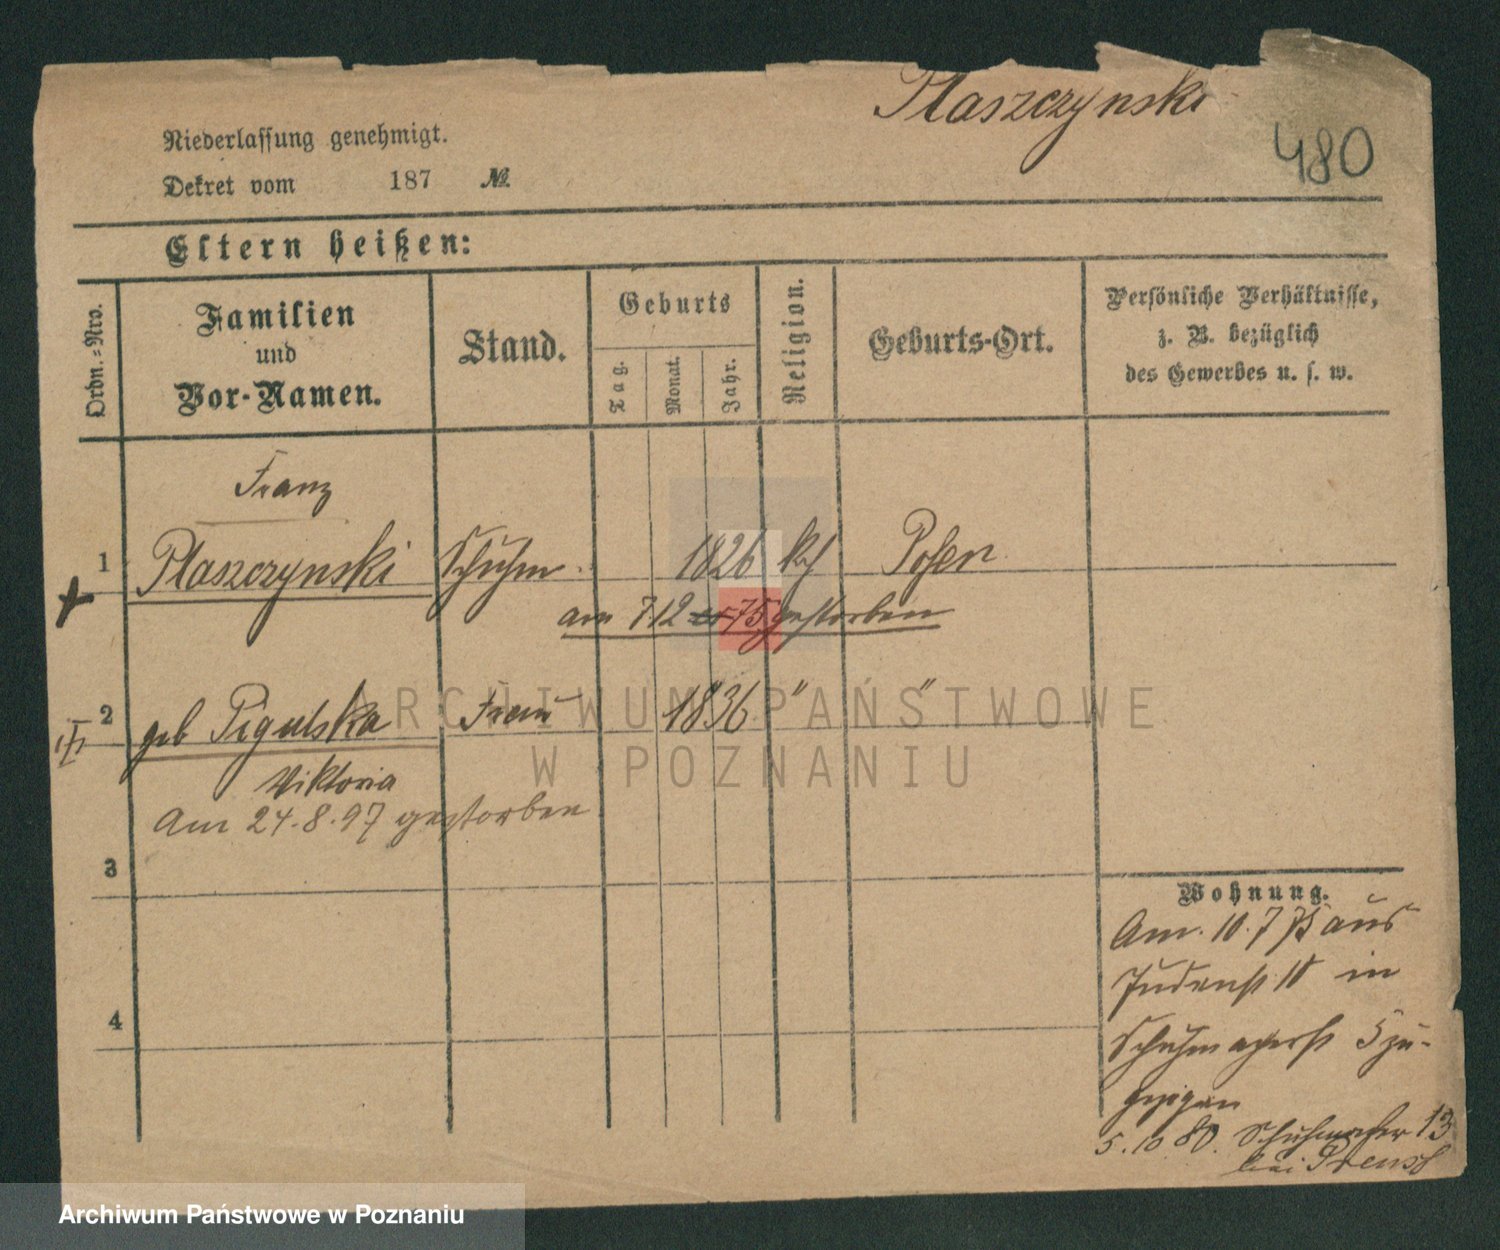 Ptaszczynski
480
Niederlassung genehmigt.
Dekret vom 187 №
Eltern heißen:
Ordn.-Nro.
Familien
und
Vor-Namen.
Stand.
Geburts
Tag.
Monat.
Jahr.
Religion.
Geburts-Ort.
Persönliche Verhältnisse,
z. B. bezüglich
des Gewerbes u. s. w.
Franz
1 Ptaszczynski Schuhm. 1826 kth Posen
am 7 12 75 gestorben
2 geb Pigulska Frau 1836 " "
Viktoria
Am 24.8.97 gestorben
3
4
Wohnung.
Am. 10. 7 75 aus
Judenst 10 in
Schuhmacherst 5 zu-
gezogen
5. 10 80. Schuhmacher 13
bei
ARCHIWUM PAŃSTWOWE
W POZNANIU
Archiwum Państwowe w Poznaniu